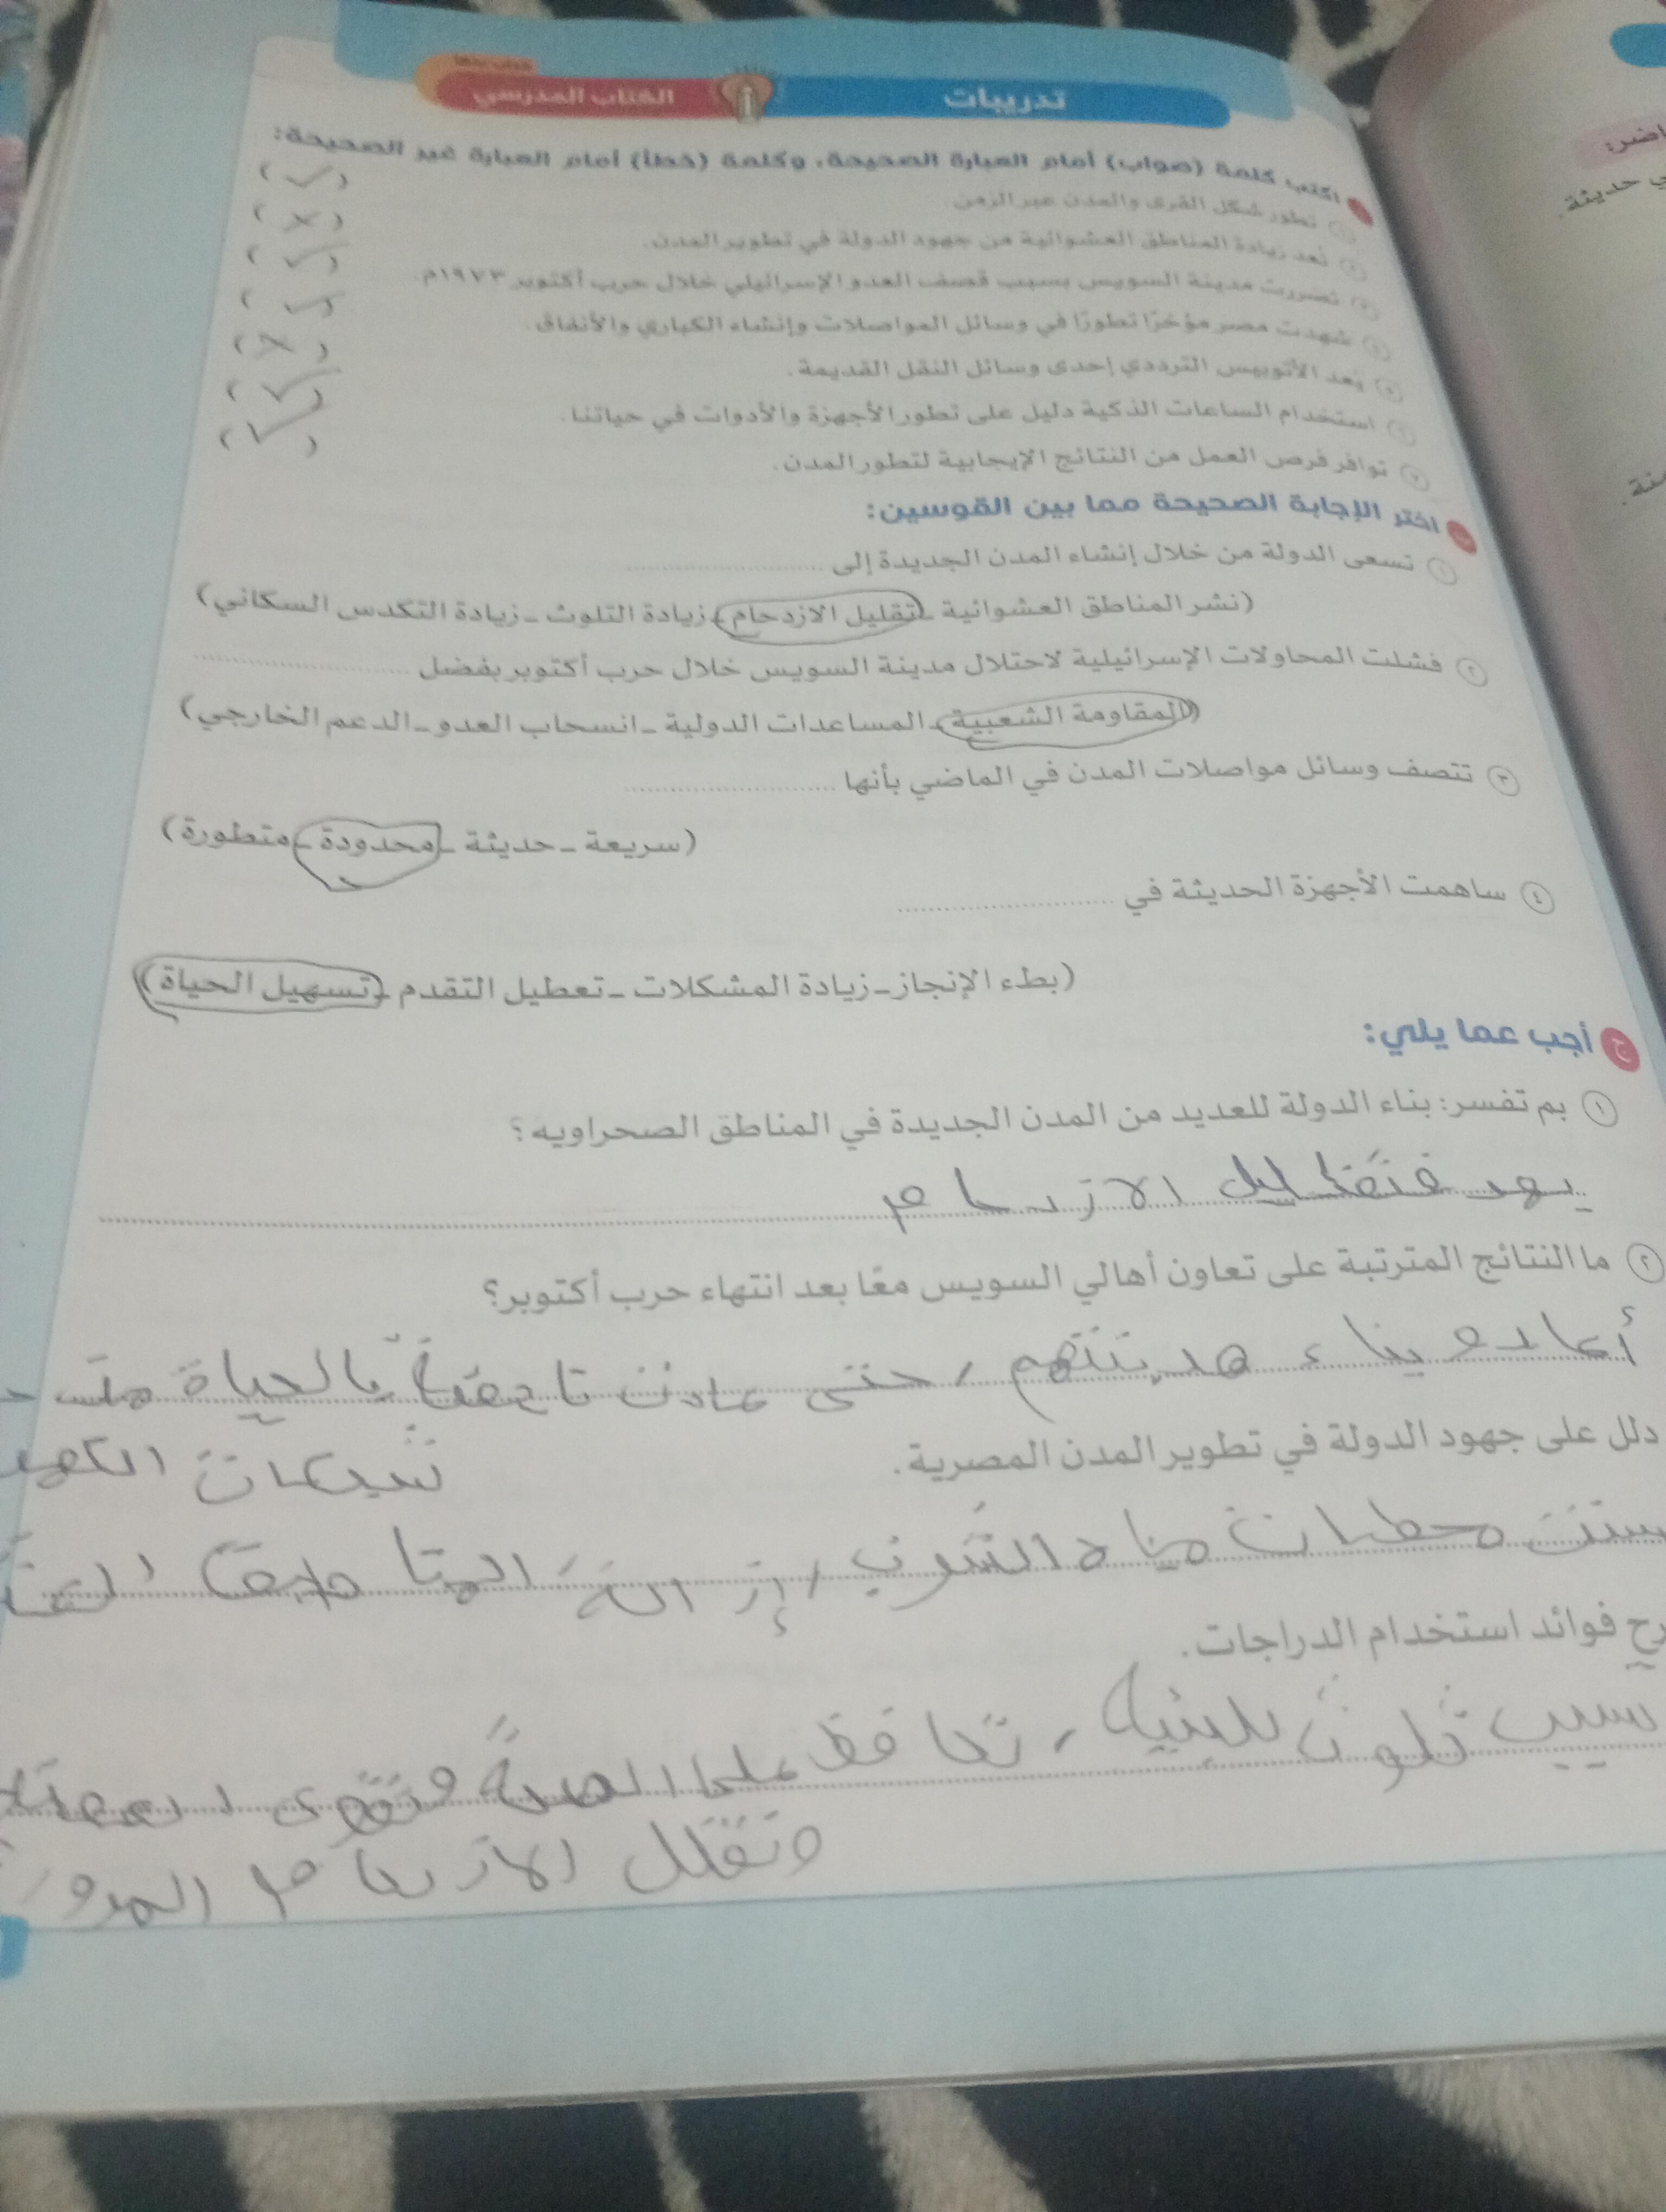 تدريبات
الكتاب المدرسي
اكتب كلمة (صواب) أمام العبارة الصحيحة، وكلمة (خطأ) أمام العبارة غير الصحيحة:
١ تطور شكل القرى والمدن عبر الزمن. (✓)
٢ تُعد زيادة المناطق العشوائية من جهود الدولة في تطوير المدن. (×)
٣ تضررت مدينة السويس بسبب قصف العدو الإسرائيلي خلال حرب أكتوبر ١٩٧٣م. (✓)
٤ شهدت مصر مؤخرًا تطورًا في وسائل المواصلات وإنشاء الكباري والأنفاق. (✓)
٥ يُعد الأتوبيس الترددي إحدى وسائل النقل القديمة. (×)
٦ استخدام الساعات الذكية دليل على تطور الأجهزة والأدوات في حياتنا. (✓)
٧ توافر فرص العمل من النتائج الإيجابية لتطور المدن. (✓)
ب اختر الإجابة الصحيحة مما بين القوسين:
١ تسعى الدولة من خلال إنشاء المدن الجديدة إلى ....................
(نشر المناطق العشوائية – تقليل الازدحام – زيادة التلوث – زيادة التكدس السكاني)
٢ فشلت المحاولات الإسرائيلية لاحتلال مدينة السويس خلال حرب أكتوبر بفضل ....................
(المقاومة الشعبية – المساعدات الدولية – انسحاب العدو – الدعم الخارجي)
٣ تتصف وسائل مواصلات المدن في الماضي بأنها ....................
(سريعة – حديثة – محدودة – متطورة)
٤ ساهمت الأجهزة الحديثة في ....................
(بطء الإنجاز – زيادة المشكلات – تعطيل التقدم – تسهيل الحياة)
ج أجب عما يلي:
١ بم تفسر: بناء الدولة للعديد من المدن الجديدة في المناطق الصحراويه؟
الازدحام
٢ ما النتائج المترتبة على تعاون أهالي السويس معًا بعد انتهاء حرب أكتوبر؟
أعادو بناء مدينتهم، حتى عادت بالحياة
دلل على جهود الدولة في تطوير المدن المصرية.
شبكات
محطات مياه الشرب، إزالة
رح فوائد استخدام الدراجات.
تلوث للبيئة، تحافظ على الصحة وتقوى
وتقلل الازدحام